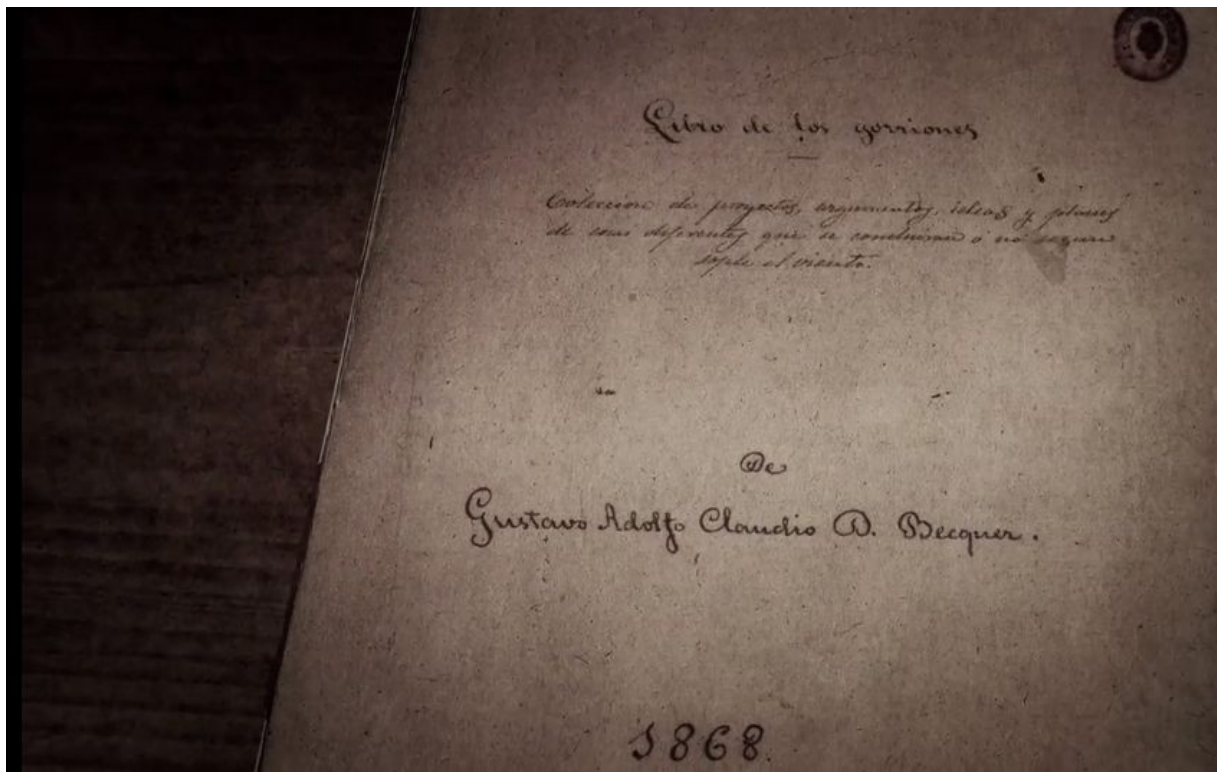 Libro de los gorriones
Coleccion de proyectos, argumentos, ideas y planes
de cosas diferentes que se concluiran ó no segun
sople el viento.
De
Gustavo Adolfo Claudio D. Becquer.
1868